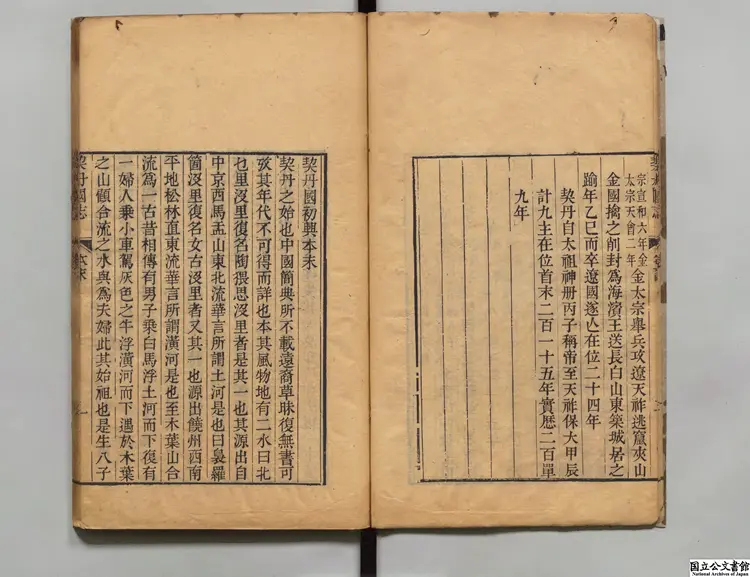 宗宣和六年金
太宗天會二年
金太宗舉兵攻遼天祚逃竄夾山
金國擒之削封爲海濱王送長白山東築城居之
踰年乙巳而卒遼國遂亾在位二十四年
契丹自太祖神册丙子稱帝至天祚保大甲辰
計九主在位首末二百一十五年實歷二百單
九年
契丹國初興本末
契丹之始也中國簡典所不載遠裔草昧復無書可
攷其年代不可得而詳也本其風物地有二水曰北
乜里沒里復名陶猥思沒里者是其一也其源出自
中京西馬盂山東北流華言所謂土河是也曰裊羅
箇沒里復名女古沒里者又其一也源出饒州西南
平地松林直東流華言所謂潢河是也至木葉山合
流爲一古昔相傳有男子乘白馬浮土河而下復有
一婦人乘小車駕灰色之牛浮潢河而下遇於木葉
之山顧合流之水與爲夫婦此其始祖也是生八子
契丹國志
本末
一
国立公文書館
National Archives of Japan